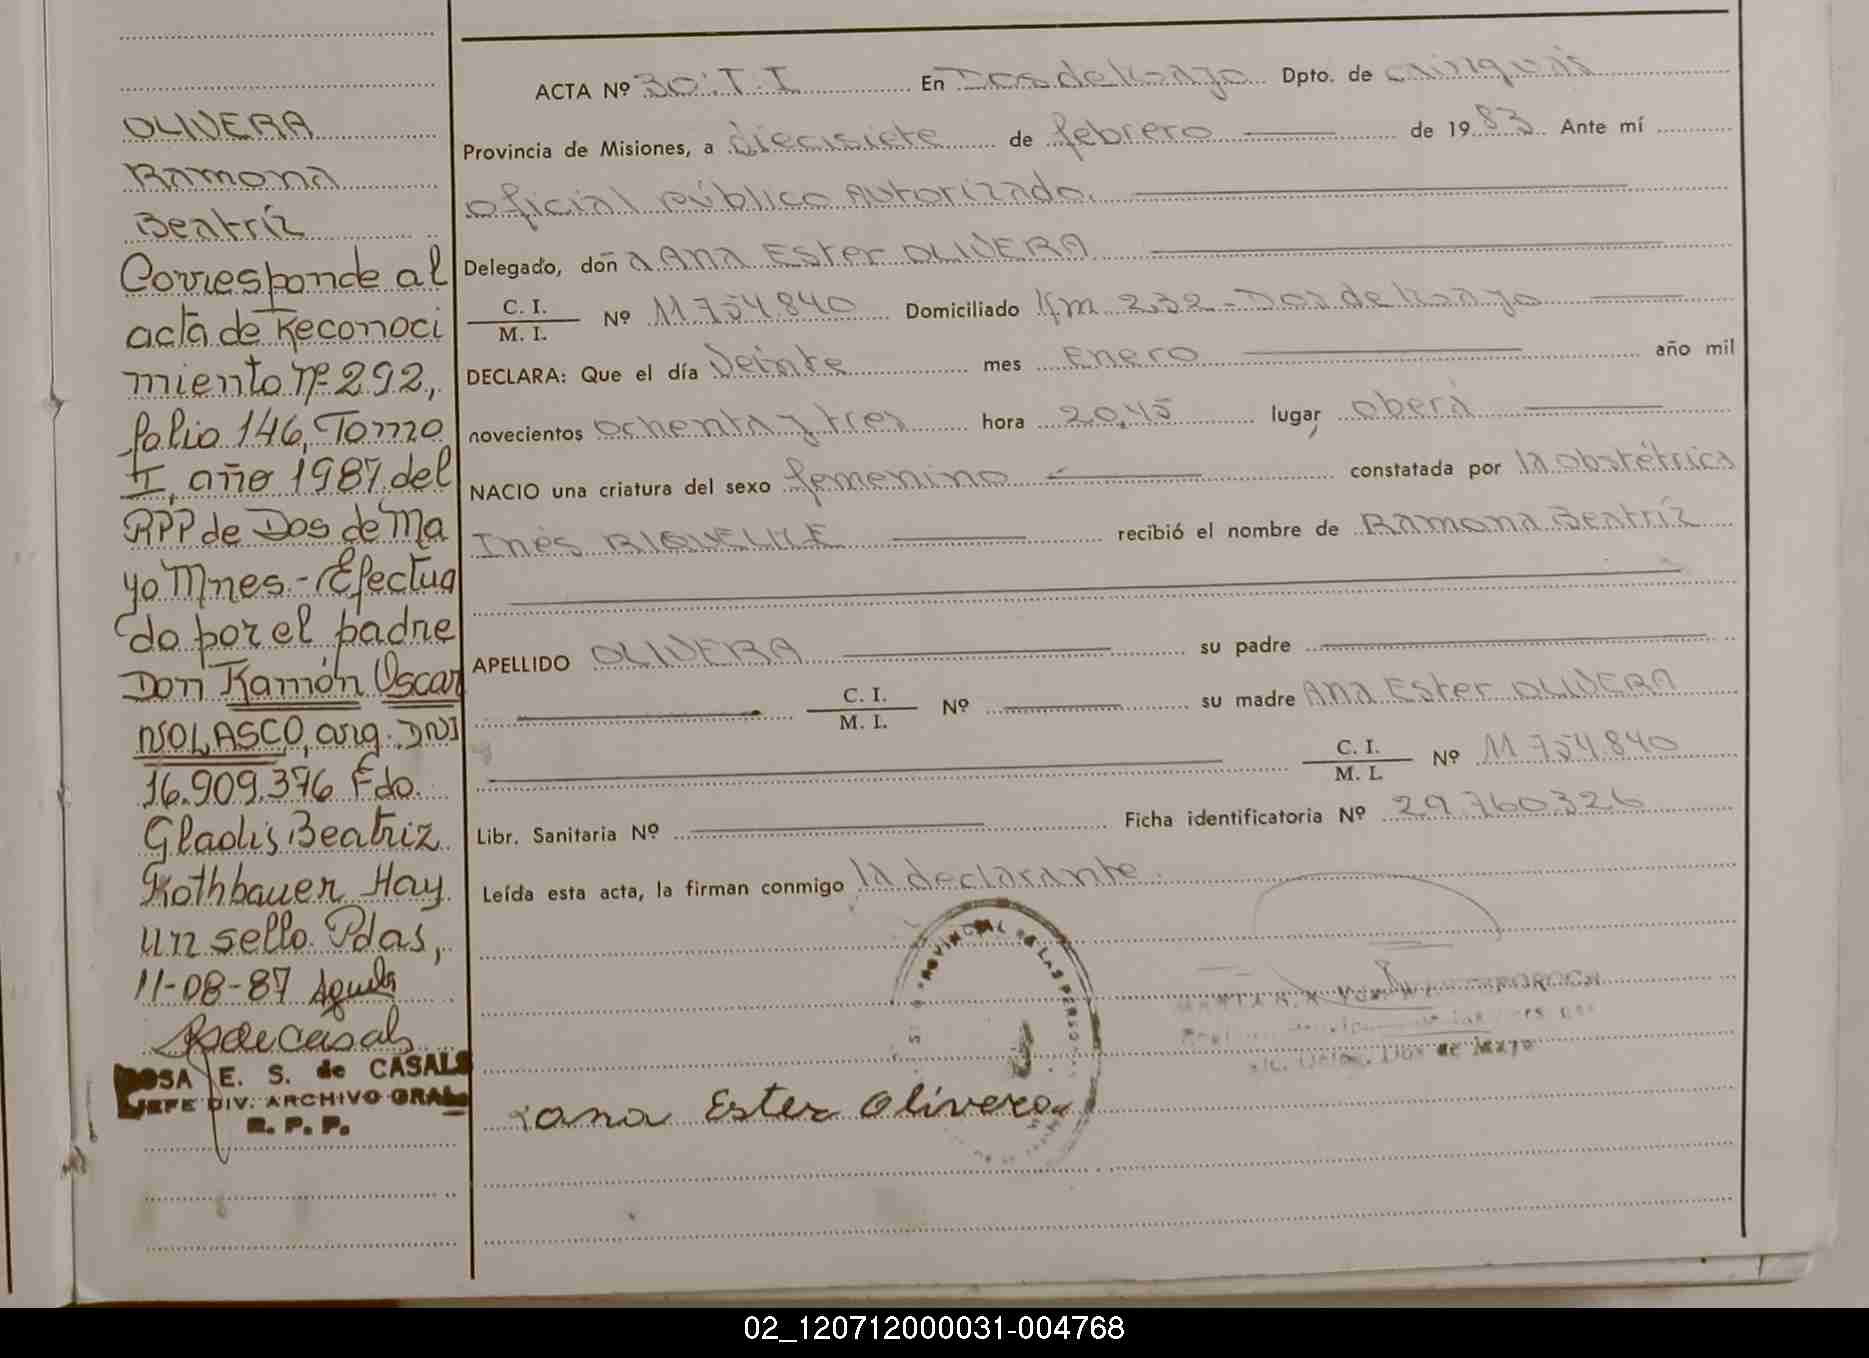 OLIVERA
Ramona
Beatríz
Corresponde al
acta de Reconoci
miento Nº 292,
folio 146, Tomo
I, año 1987 del
RPP de Dos de Ma
yo Mnes.- Efectua
do por el padre
Don Ramón Oscar
NOLASCO, arg. DNI
16.909.376 Fdo.
Gladis Beatriz
Rothbauer Hay
un sello. Pdas,
11-08-87
RSdeCasals
ROSA E. S. de CASALS
JEFE DIV. ARCHIVO GRAL.
R. P. P.
ACTA Nº 30: T. I En Dos de Mayo Dpto. de Cainguás
Provincia de Misiones, a diecisiete de febrero de 1983 Ante mí
oficial público autorizado.
Delegado, doña Ana Ester OLIVERA
C. I. / M. I. Nº 11.754.840 Domiciliado Km 232 - Dos de Mayo
DECLARA: Que el día Veinte mes Enero año mil
novecientos ochenta y tres hora 20,45 lugar Oberá
NACIO una criatura del sexo femenino constatada por la obstétrica
Inés RIQUELME recibió el nombre de Ramona Beatríz
APELLIDO OLIVERA su padre
C. I. / M. I. Nº su madre Ana Ester OLIVERA
C. I. / M. I. Nº 11.754.840
Libr. Sanitaria Nº Ficha identificatoria Nº 29.760.326
Leída esta acta, la firman conmigo la declarante.
PROVINCIAL DE LAS PERSO
Dos de Mayo
Ana Ester Olivera
02_120712000031-004768